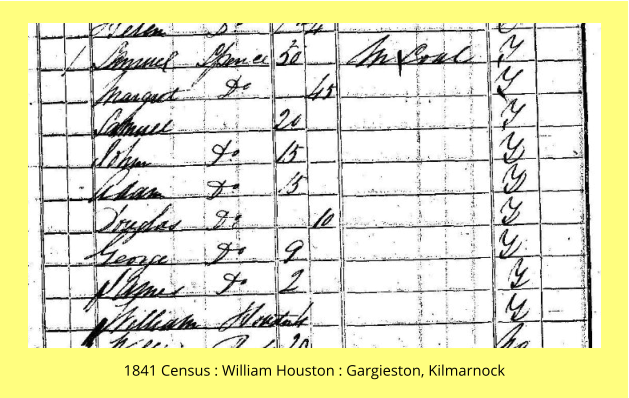 Do
1 Samuel Spence 50 M Coal Y
Margret Do 45 Y
Samuel 20 Y
John Do 15 Y
Adam Do 15 Y
Douglas Do 10 Y
George Do 9 Y
James Do 2 Y
William Y
20
1841 Census : William Houston : Gargieston, Kilmarnock